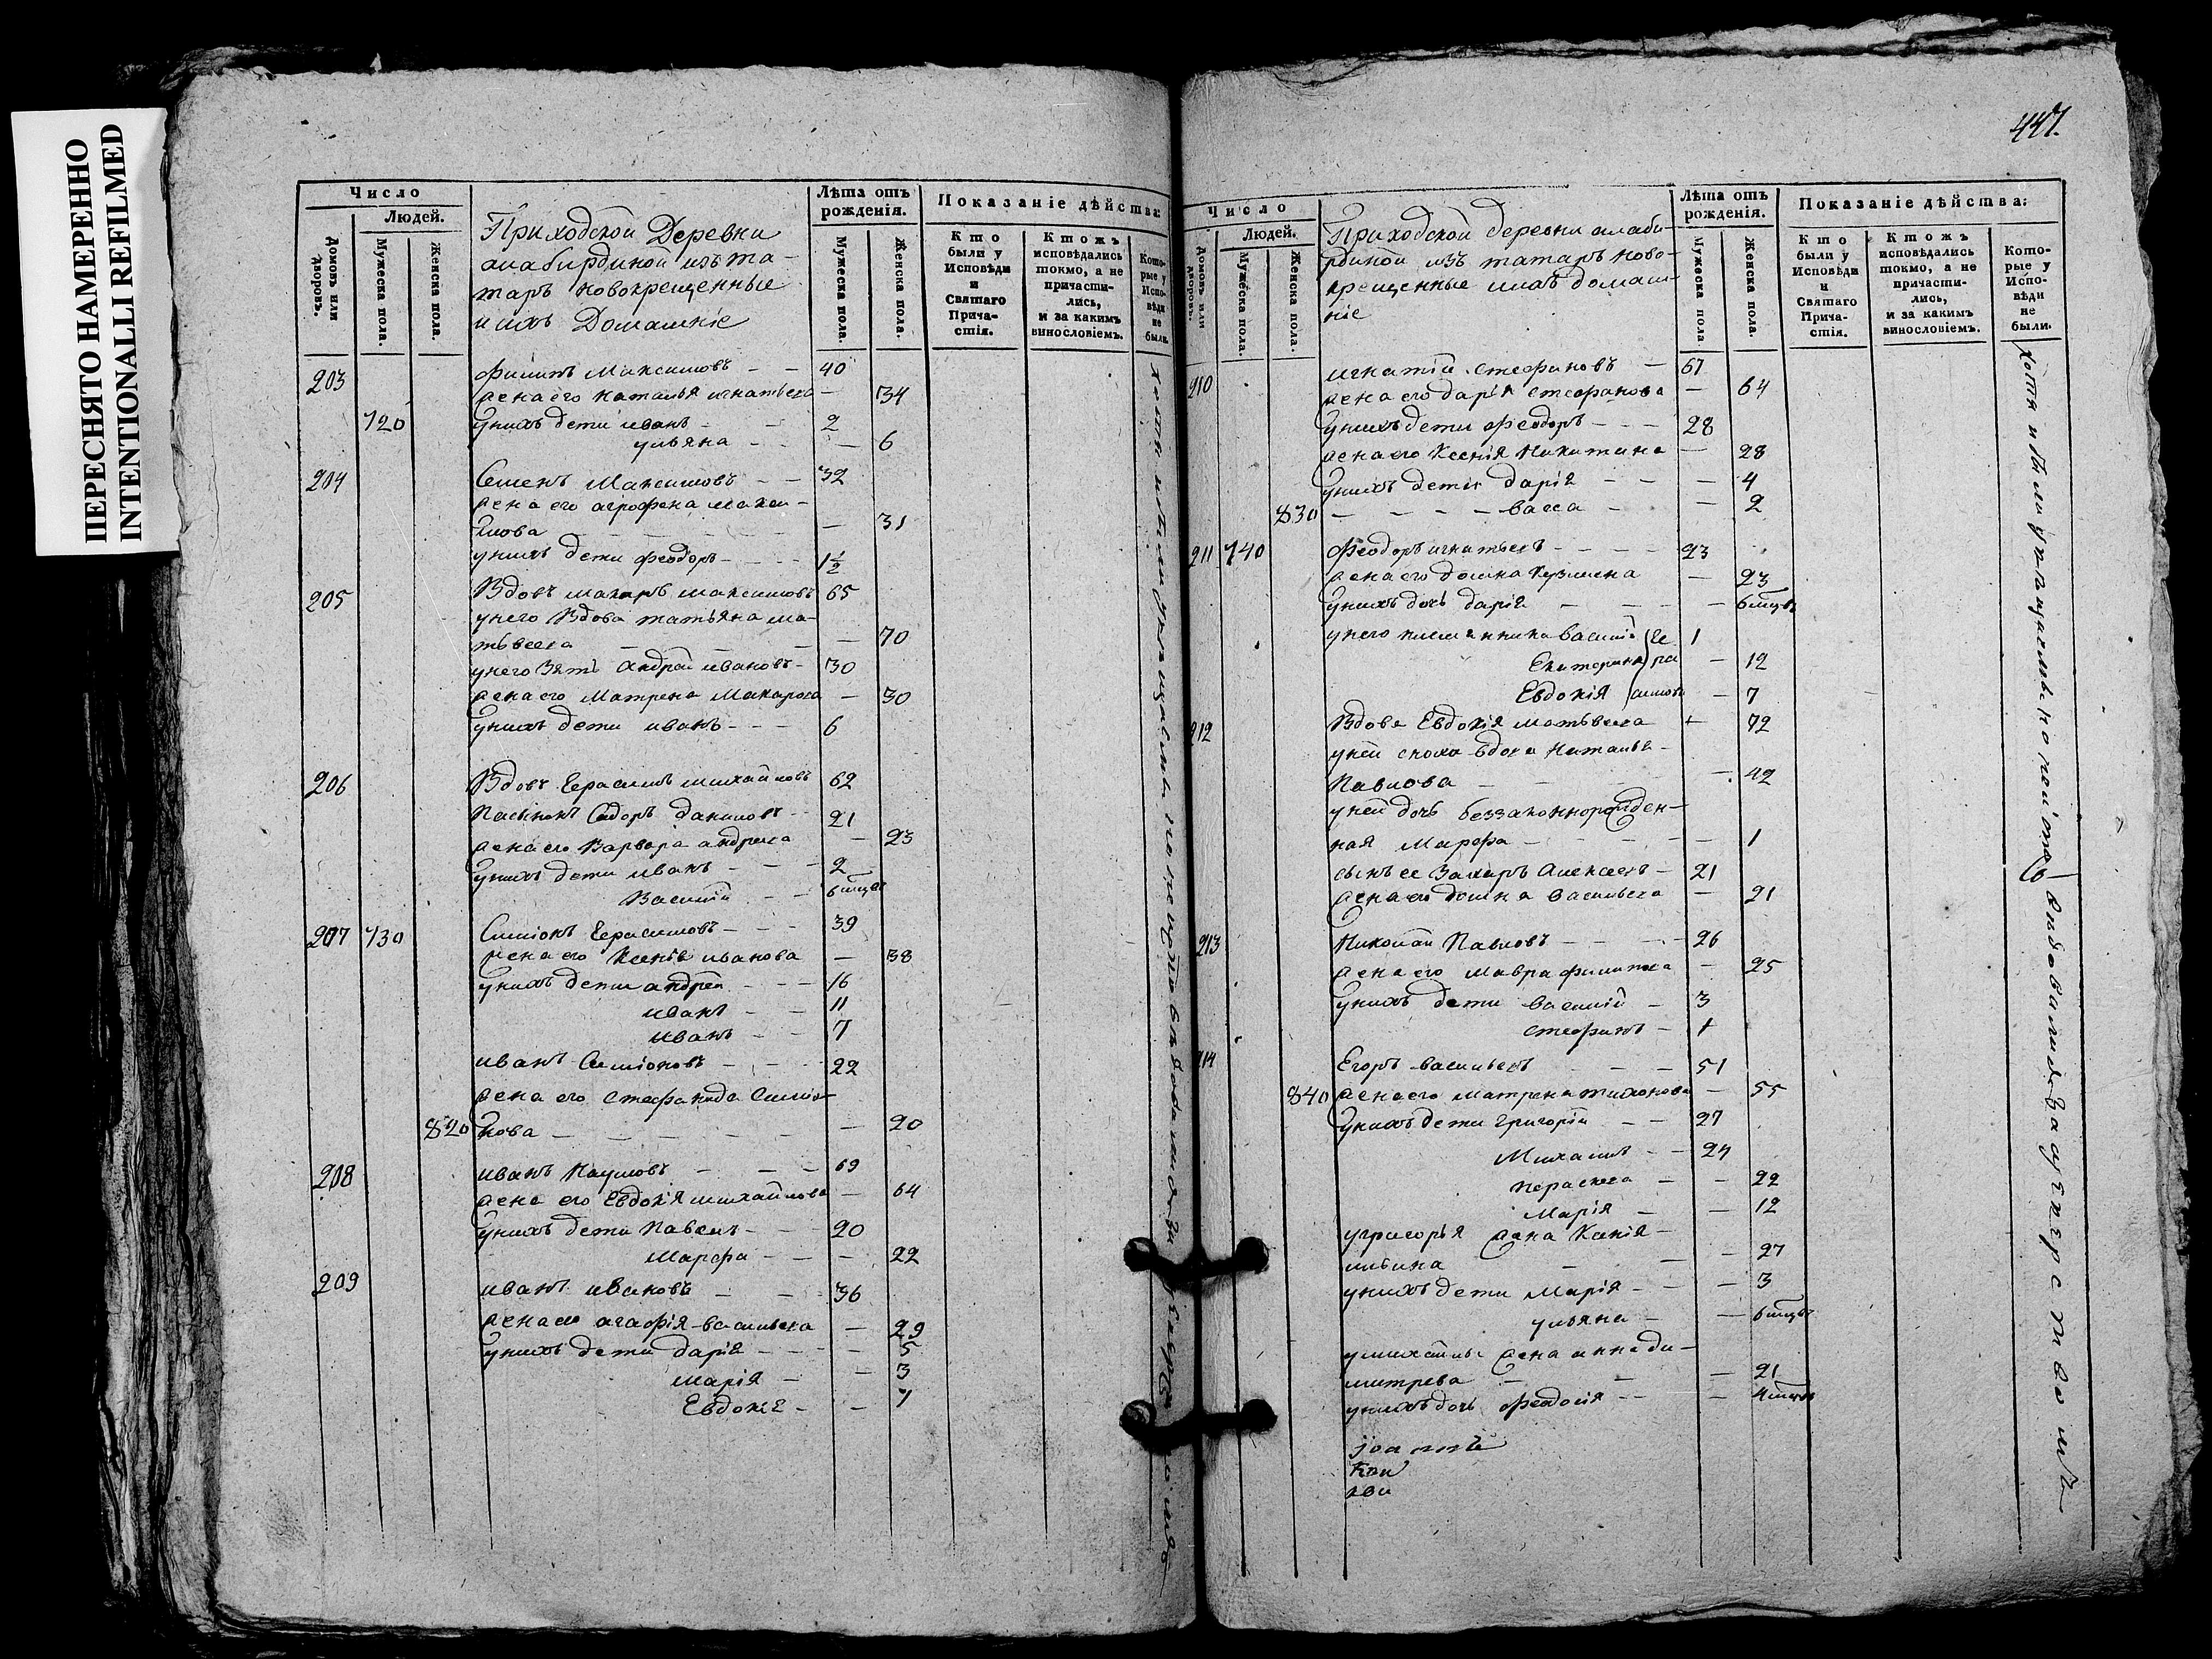 ПЕРЕСНЯТО НАМЕРЕННО
INTENTIONALLI REFILMED
Число
Людей.
Домовъ или дворовъ.
Мужеска пола.
Женска пола.
Приходской Деревни
алабирдиной изъ та-
таръ новокрещенные
и ихъ Домашніе
Лѣта отъ рожденія.
Мужеска пола.
Женска пола.
Показаніе дѣйства:
Кто были у Исповѣди и Святаго Причастія.
Ктожъ исповѣдались токмо, а не причастились, и за какимъ винословіемъ.
Которые у Исповѣди не были.
203 Филипъ Максимовъ — — 40
жена его наталья игнатьева — 34
720 у нихъ дети иванъ — — 2
ульяна — — — 6
204 Семенъ Максимовъ — — 32
жена его агрофена
— 31
у нихъ дети феодоръ — — 1½
205 Вдовъ макаръ максимовъ 65
у него Вдова татьяна ма-
твеева — 70
у него Зять Андрей ивановъ — 30
жена его Матрена Макарова — 30
у нихъ дети иванъ — — 6
206 Вдовъ Герасимъ михайловъ 62
Пасынокъ Сидоръ даниловъ — 21
жена его Варвара андреева — 23
у нихъ дети иванъ — — 2
Василий — — 6 мцов
207 730 Симіонъ Герасимовъ — — 39
жена его Ксенья иванова — 38
у нихъ дети андрей — — 16
иванъ — — 11
иванъ — — 7
иванъ Симіоновъ — — 22
жена его Стефанида Симіо-
820 нова — — — — — 20
208 иванъ Наумовъ — — — 69
жена его Евдокія михайлова — 64
у нихъ дети Павелъ — — 20
Марфа — — — 22
209 иванъ ивановъ — — 36
жена его агафія васильева — 29
у нихъ дети дарія — — — 5
марія — — 3
Евдокія — — 1
447.
Число
Людей.
Домовъ или дворовъ.
Мужеска пола.
Женска пола.
Приходской деревни алаби-
рдиной изъ татаръ ново-
крещенные и ихъ домаш-
ніе
Лѣта отъ рожденія.
Мужеска пола.
Женска пола.
Показаніе дѣйства:
Кто были у Исповѣди и Святаго Причастія.
Ктожъ исповѣдались токмо, а не причастились, и за какимъ винословіемъ.
Которые у Исповѣди не были.
210 игнатій Стефановъ — 67
жена его дарія Стефанова — 64
у нихъ дети феодоръ — — — 28
жена его Ксенія Никитина — 28
у нихъ дети дарія — — — 4
830 — — — — васса — — 2
211 740 феодоръ игнатьевъ — — — 23
жена его домна Кузмина — 23
у нихъ дочь дарія — — — 6 мцов
у него племянники василій 1
Екатерина — 12
Евдокія — 7
212 Вдова Евдокія матвеева — 72
у ней сноха вдова Наталья
Павлова — — 42
у ней дочь беззаконнорожден-
ная Марфа — — — — 1
сынъ ее Захаръ Алексеевъ — 21
жена его домна Васильева — 21
213 Николай Павловъ — — — 26
жена его мавра филипова — 25
у нихъ дети василий — 3
стефанъ — 1
214 Егоръ васильевъ — — 51
840 жена его матрена тихонова — 55
у нихъ дети григорій — — 27
Михаилъ — — 24
параскева — — 22
Марія — — 12
у григорія жена Ксенія —
ильина — — — 27
у нихъ дети Марія — — 3
ульяна — — 6 мцов
у михаила жена анна ди-
митрева — — — 21
у нихъ дочь феодосія — — — 4 мцов